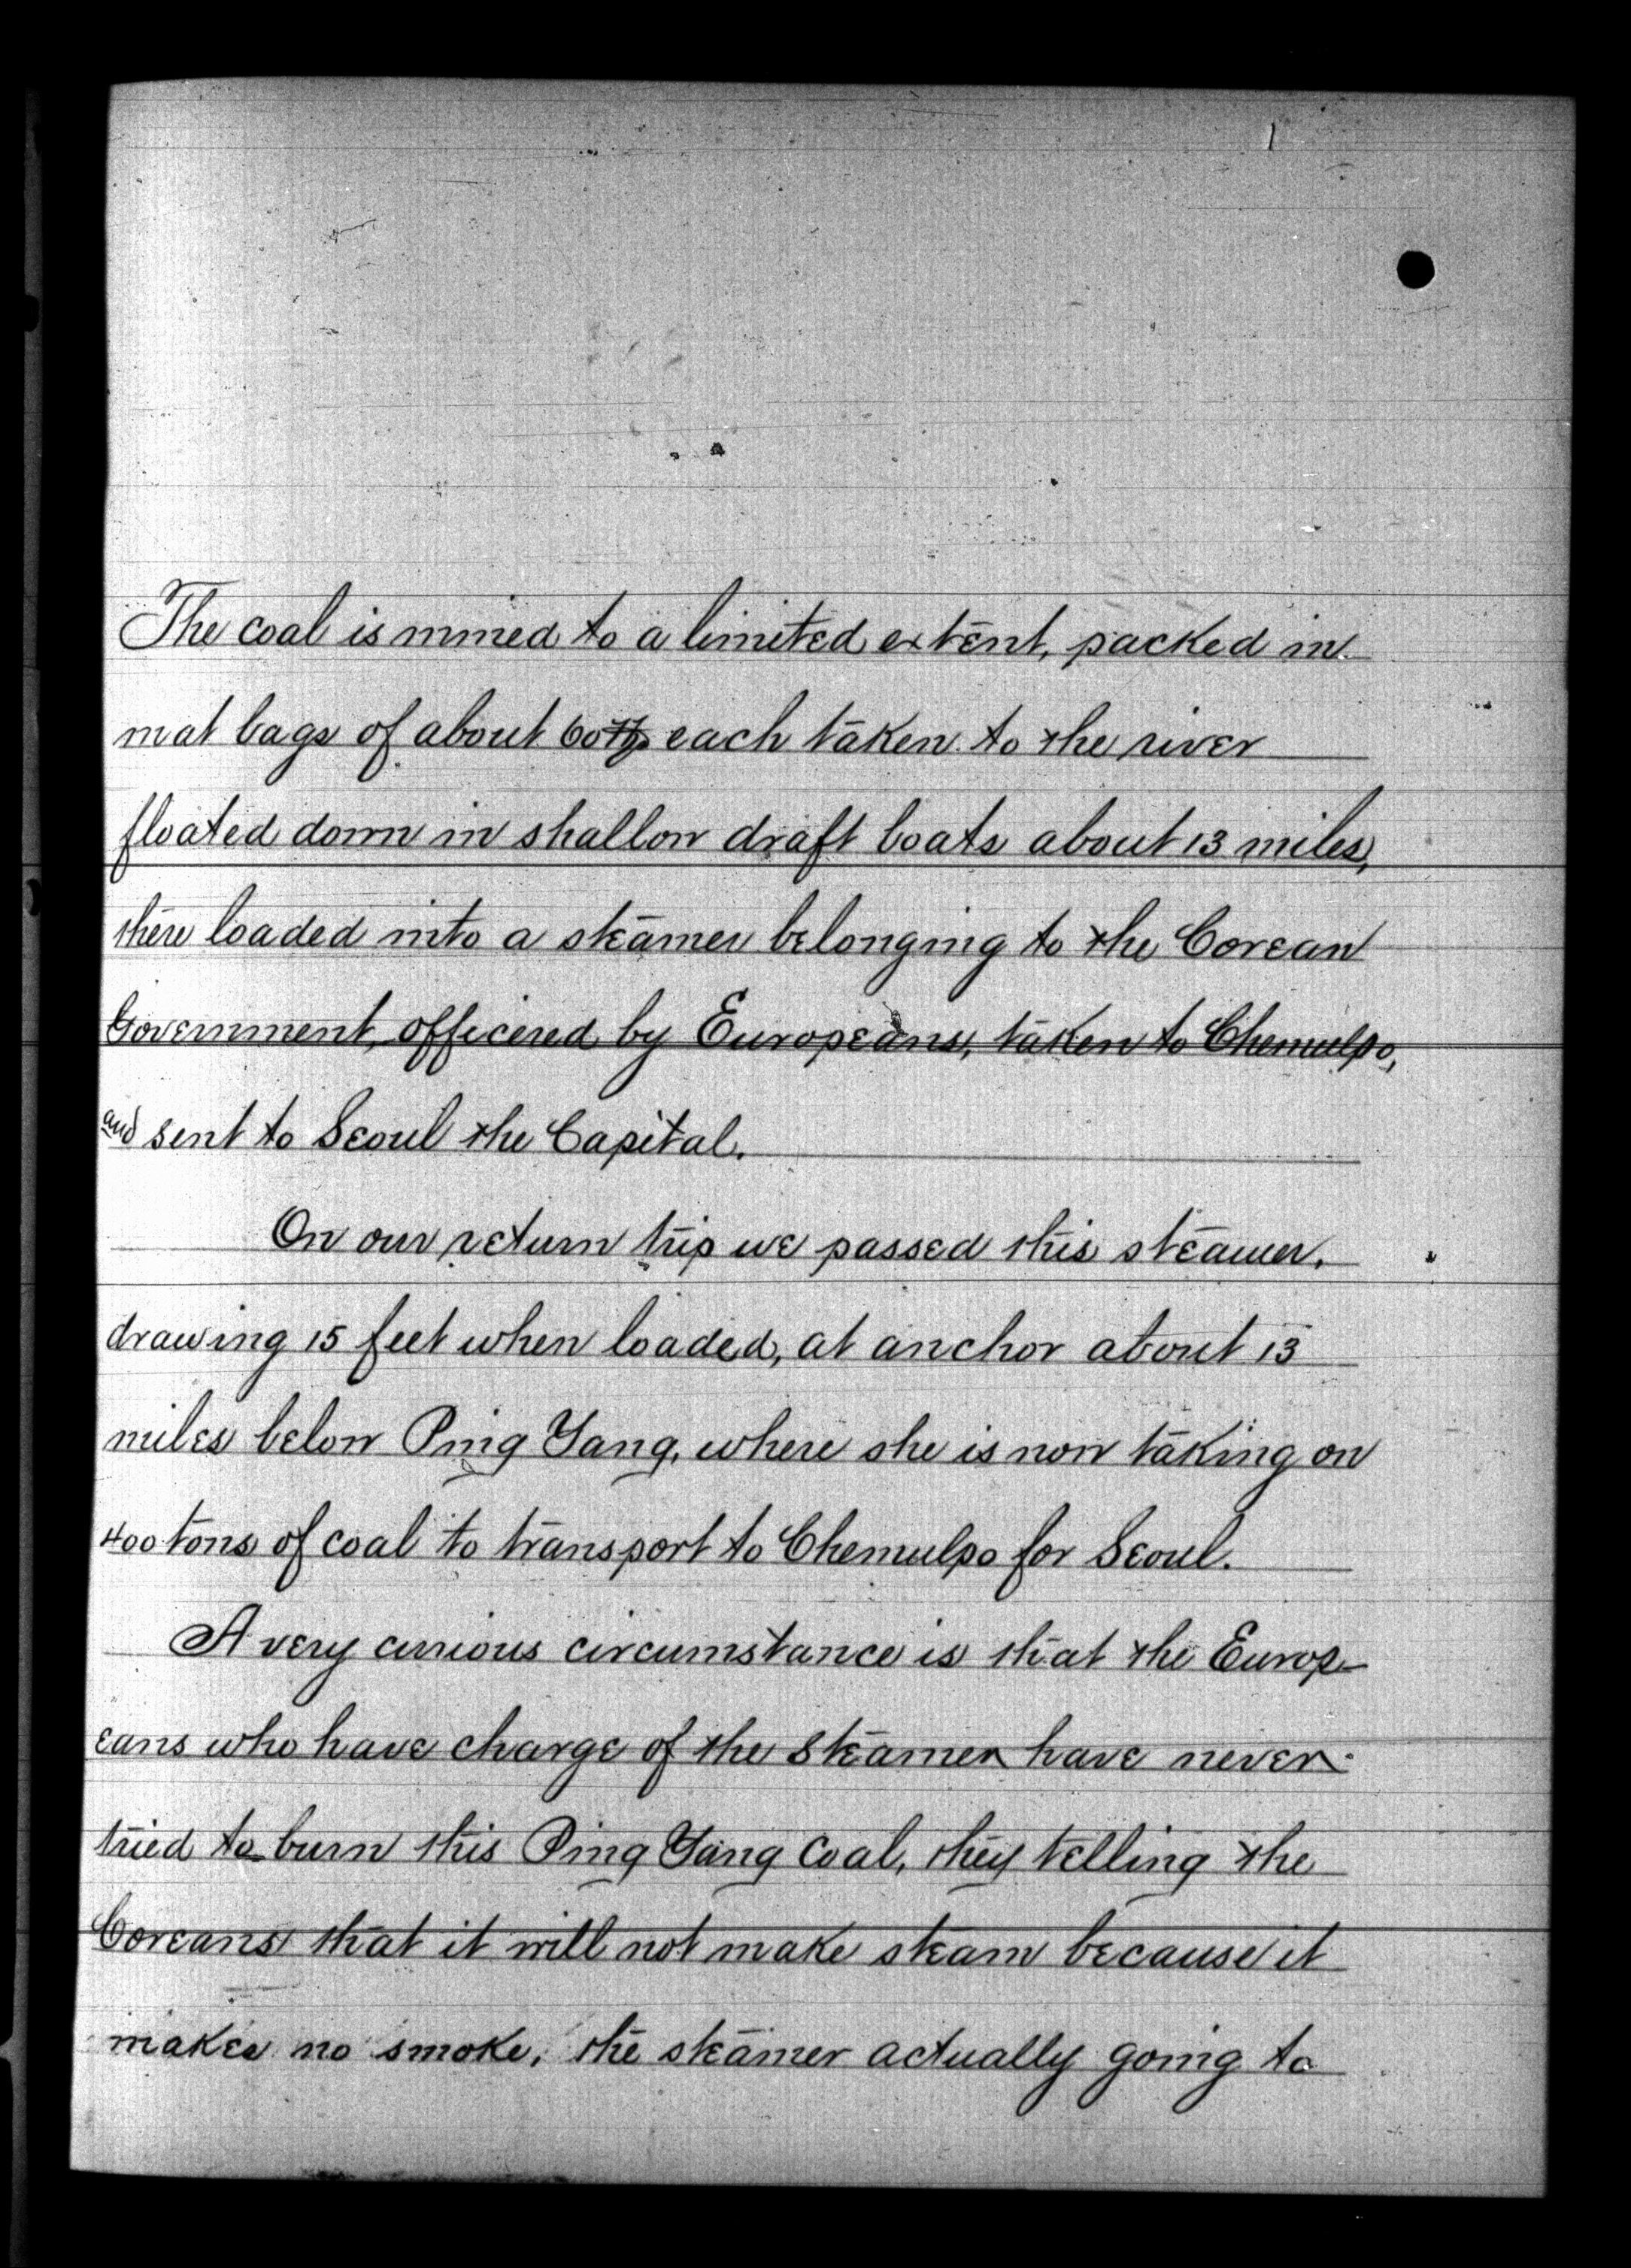 1
The coal is mined to a limited extent, packed in
mat bags of about 60 ℔s each taken to the river
floated down in shallow draft boats about 13 miles,
there loaded into a steamer belonging to the Corean
Government, officered by Europeans, taken to Chemulpo,
and sent to Seoul the Capital.
On our return trip we passed this steamer,
drawing 15 feet when loaded, at anchor about 13
miles below Ping Yang, where she is now taking on
400 tons of coal to transport to Chemulpo for Seoul.
A very curious circumstance is that the Europ-
eans who have charge of the steamer have never
tried to burn this Ping Yang coal, they telling the
Coreans that it will not make steam because it
makes no smoke, the steamer actually going to